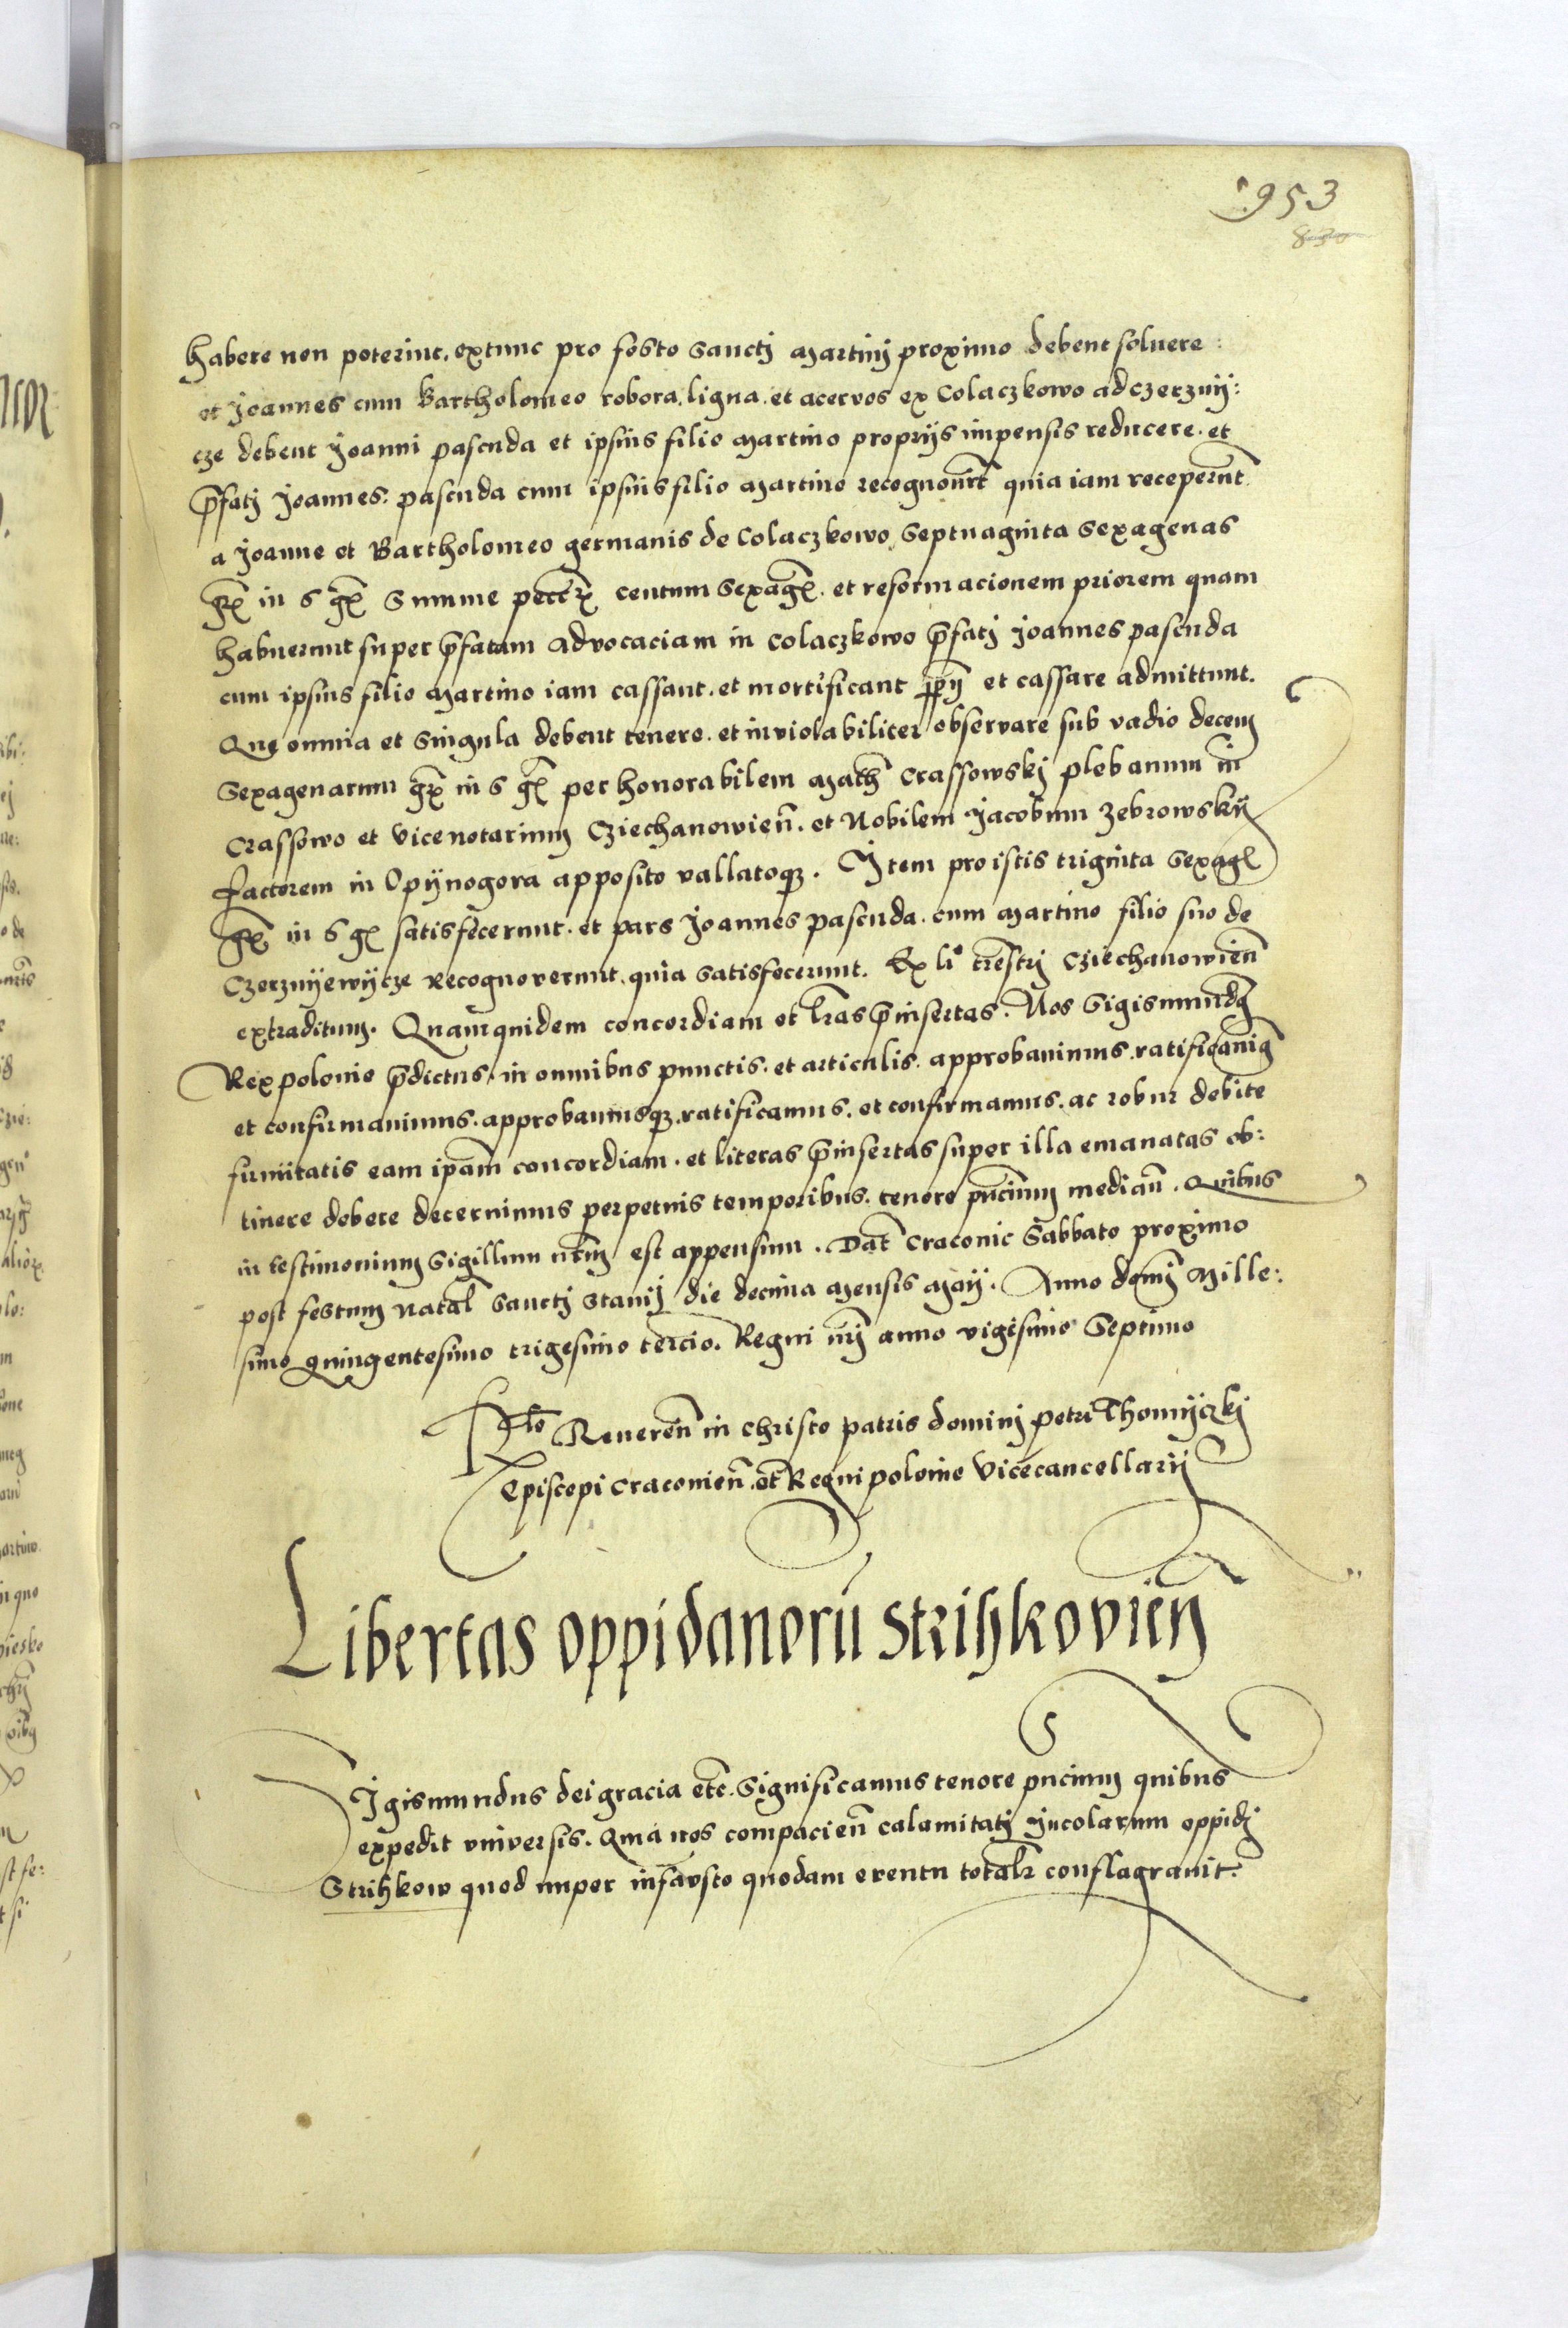 953
830
habere non poterint. extunc pro festo sanctj Martinj proximo debent soluere:
et Joannes cum Bartholomeo robora. ligna. et acervos ex Colaczkowo ad Czerznij:
cze debent Joanni pascuda et ipsius filio Martino proprijs impensis reducere. et
p̄fatj Joannes. pascuda cum ipsius filio Martino recognouer̄t quia iam receperūt
a Joanne et Bartholomeo germanis de Colaczkowo. Septuaginta Sexagenas
gr̄x in 6 gr̄x Summe centum Sexaḡ. et reformacionem priorem quam
habuerunt super p̄fatam advocaciam in Colaczkowo p̄fatj Joannes pascuda
cum ipsius filio Martino iam cassant. et mortificant et cassare admittunt.
Quę omnia et singula debent tenere. et inviolabiliter observare sub vadio decem
Sexagenarum gr̄x in 6 gr̄x per honorabilem Math̄ Crassowskj plebanum in
Crassowo et vicenotarium Cziechanowień. et Nobilem Jacobum Zebrowskij
factorem in Opijnogora apposito vallatoq̄. Item pro istis triginta Sexaḡ
gr̄x in 6 gr̄x satisfecerunt. et pars Joannes pascuda. cum Martino filio suo de
Czerznijewijcze recognoverunt. quia satisfecerunt. Ex li° tr̄estrj Cziechanowień
extraditum. Quamquidem concordiam et l̄ras p̄insertas. Nos Sigismundq̄
Rex polonie p̄dictus, in omnibus punctis. et articulis. approbauimus. ratificauimq̄
et confirmauimus. approbamusq̄. ratificamus. et confirmamus. ac robur debite
firmitatis eam ip̄am concordiam. et literas p̄insertas super illa emanatas ob:
tinere debere decernimus perpetuis temporibus. tenore pn̄cium mediań. Quibus
in testimonium Sigillum nr̄m est appensum. Dat̄ Cracouie Sabbato proximo
post festum natal̄ Sanctj Stan̄ij die decima Mensis Maij. Anno domj̄ Mille:
simo quingentesimo trigesimo tercio. Regni nr̄j anno vigesimo Septimo
Rel̄to Reuereń in christo patris dominj petri Thomijczkj
Episcopi Cracouień. et Regni polonie Vicecancellarij
Libertas oppidanorū Strihkovień
Igismundus dei gracia etc̄. Significamus tenore pn̄cium quibus
expedit vniversis. Quia nos compacień calamitatj Jncolarum oppidj
Strihkow quod nuper infavsto quodam eventu total̄r conflagrauit.